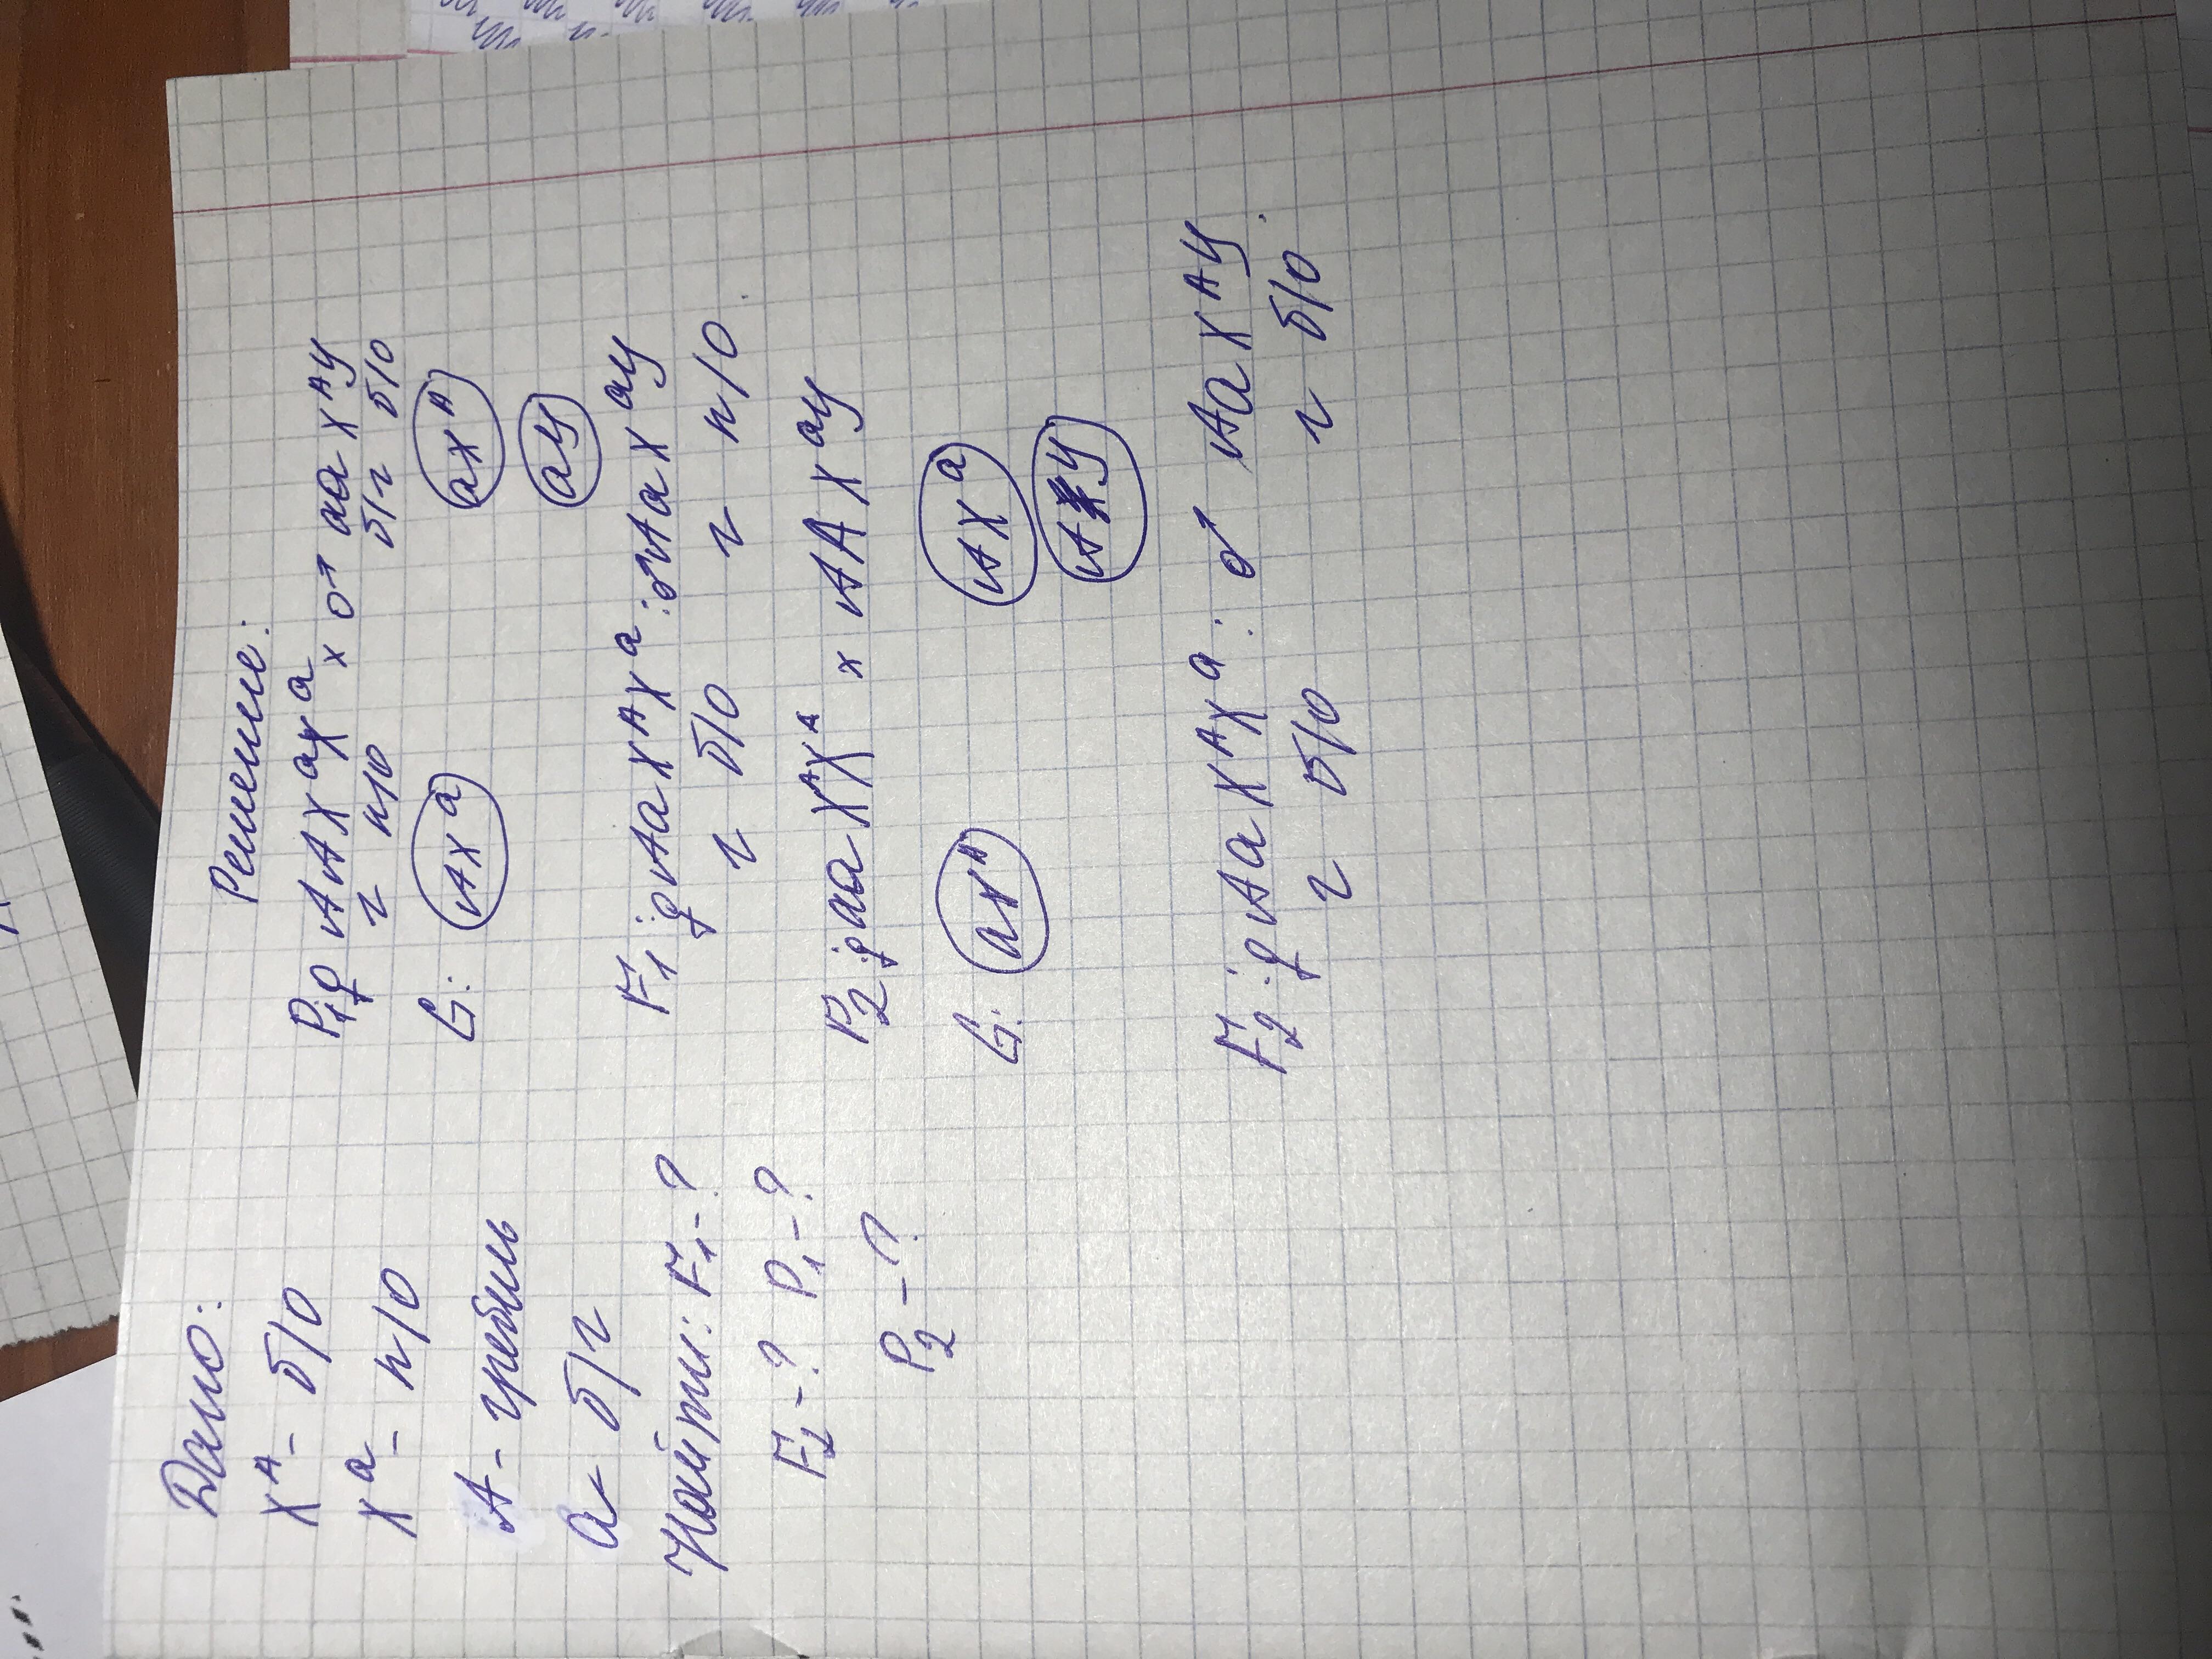 Дано:
X^A - б/о
X^a - п/о
A - гребень
a - б/г
Найти: F₁ - ?
F₂ - ? P₁ - ?
P₂ - ?
Решение:
P₁ ♀ AA X^a X^a × ♂ aa X^A У
г п/о б/г б/о
G: AX^a aX^A
aУ
F₁ ♀ Aa X^A X^a : ♂ Aa X^a У
г б/о г п/о.
P₂: ♀ aa X^A X^A × AA X^a У
G: aX^A AX^a
AУ
F₂: ♀ Aa X^A X^a : ♂ Aa X^A У
г б/о г б/о.